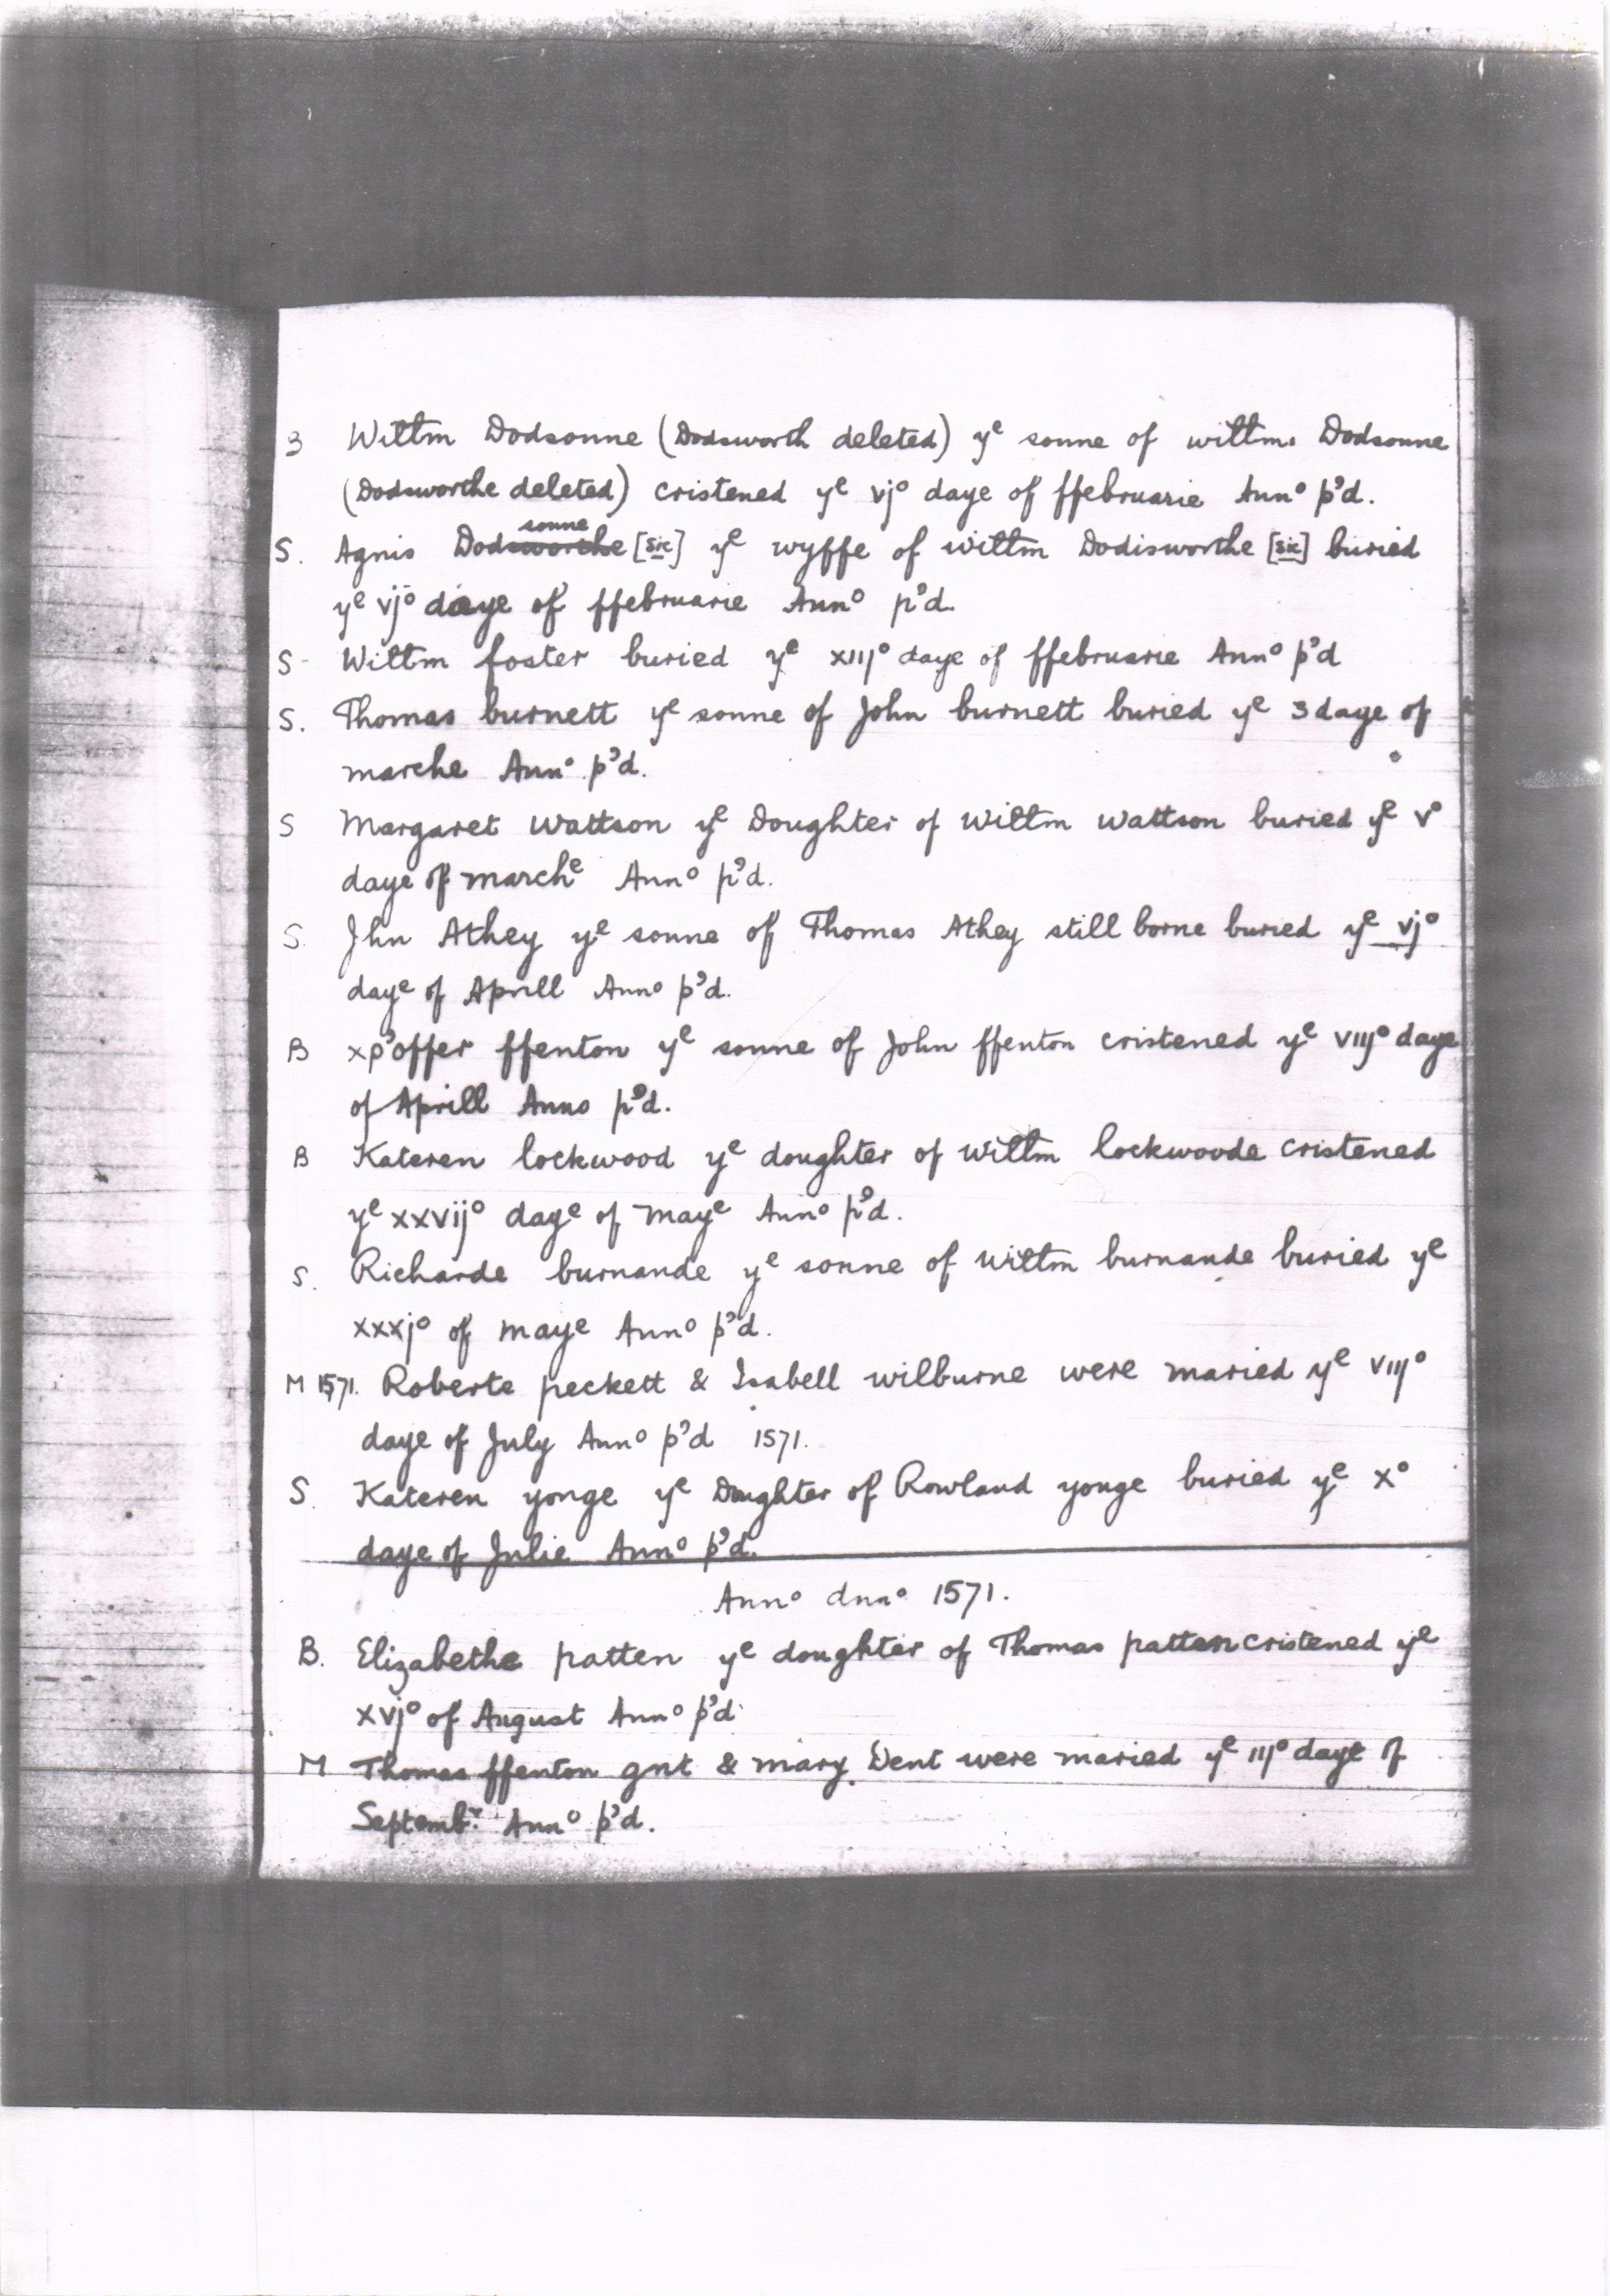 B Willm Dodsonne (Dodsworth deleted) yᵉ sonne of willm. Dodsonne
(Dodsworthe deleted) cristened yᵉ vjº daye of ffebruarie Annº p'd.
sonne
S. Agnis Dodsworthe [sic] yᵉ wyffe of willm Dodisworthe [sic] buried
yᵉ vjº daye of ffebruarie Annº p'd.
S- Willm foster buried yᵉ xiijº daye of ffebruarie Annº p'd
S. Thomas burnett yᵉ sonne of John burnett buried yᵉ 3 daye of
marche Annº p'd.
S Margaret Wattson yᵉ Doughter of Willm Wattson buried yᵉ vº
daye of marchᵉ Annº p'd.
S. Jhn Athey yᵉ sonne of Thomas Athey still borne buried yᵉ vjº
dayᵉ of Aprill Annº p'd.
B xp'offer ffenton yᵉ sonne of John ffenton cristened yᵉ viijº daye
of Aprill Anno p'd.
B Kateren lockwood yᵉ doughter of Willm lockwoode cristened
yᵉ xxvijº dayᵉ of mayᵉ Annº p'd.
S. Richarde burnande yᵉ sonne of willm burnande buried yᵉ
xxxjº of maye Annº p'd.
M 1571. Roberte peckett & Isabell wilburne were maried yᵉ viijº
daye of July Annº p'd 1571.
S. Kateren yonge yᵉ Doughter of Rowland yonge buried yᵉ xº
daye of Julie Annº p'd.
Annº dnnº 1571.
B. Elizabethe patten yᵉ doughter of Thomas patten cristened yᵉ
xvjº of August Annº p'd.
M Thomas ffenton gnt & mary Dent were maried yᵉ iijº daye of
Septembʳ. Annº p'd.